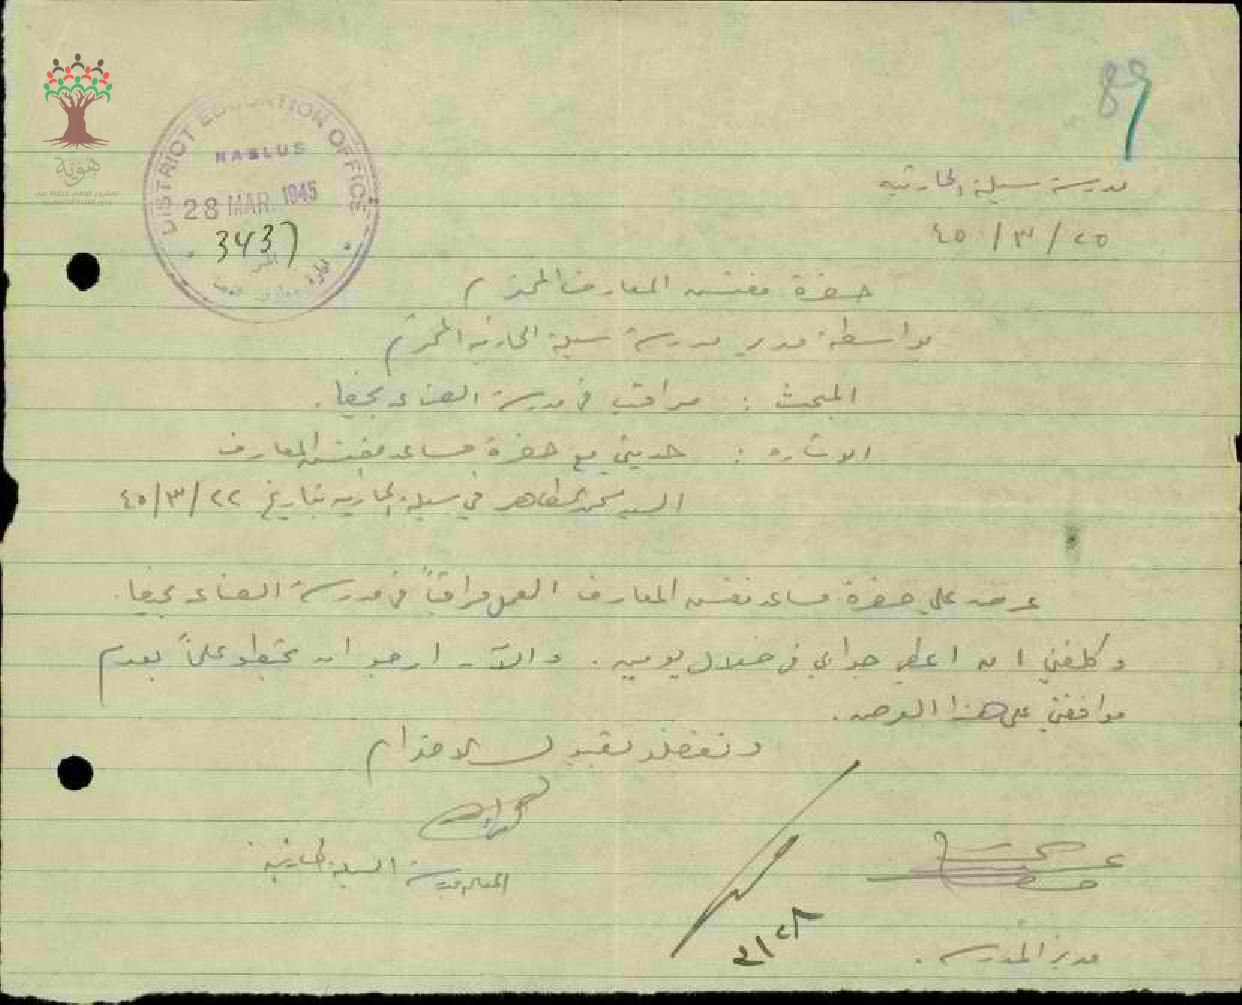 89
DISTRICT EDUCATION OFFICE
NABLUS
28 MAR. 1945
3437
هوية
المشروع الوطني للحفاظ على
جذور العائلة الفلسطينية
مدرسة سيلة الحارثية
٢٥ / ٣ / ٤٥
حضرة مفتش المعارف المحترم
بواسطة مدير مدرسة سيلة الحارثية المحترم
المبحث : مراقب في مدرسة الصناعة بحيفا .
الاشارة : حديثي مع حضرة مساعد مفتش المعارف
السيد الطاهر في سيلة الحارثية بتاريخ ٢٢/٣/٤٥
عرض علي حضرة مساعد مفتش المعارف العمل مراقباً في مدرسة الصناعة بحيفا .
وكلفني ان اعطي جوابي في خلال يومين . والآن ارجو ان تحيطوا علماً بعدم
موافقتي على هذا العرض .
وتفضلوا بقبول الاحترام
المعلم بمدرسة السيلة الحارثية
٢٨/٣
مدير المدرسة .